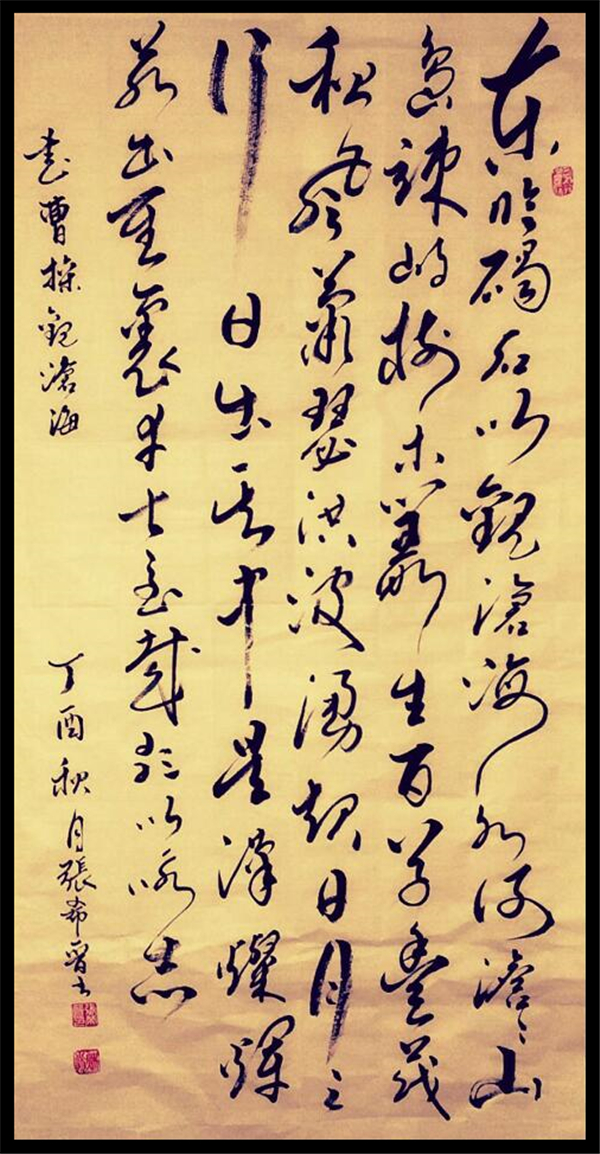 東臨碣石以觀滄海水何澹々山
島竦峙樹木叢生百草豐茂
秋風蕭瑟洪波湧起日月之
行 日出其中星漢燦
若出裏幸甚至哉歌以咏志
書曹操觀滄海
丁酉秋月張希書